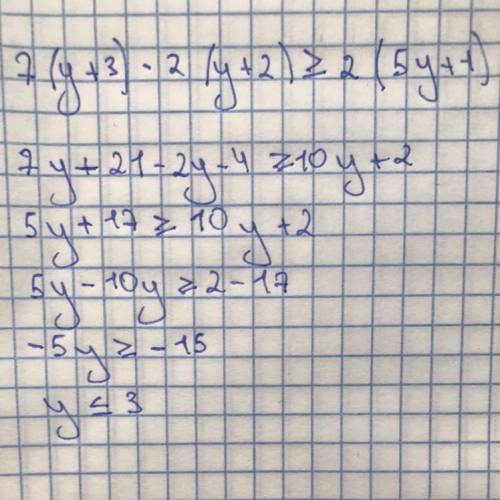 7(y+3)-2(y+2)≥2(5y+1)
7y+21-2y-4≥10y+2
5y+17≥10y+2
5y-10y≥2-17
-5y≥-15
y≤3